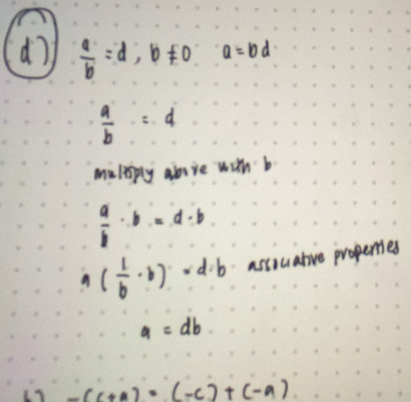 d) a/b = d, b ≠ 0 a = bd
a/b = d
multiply above with b
a/b · b = d·b
a (1/b · b) = d·b associative properties
a = db
b) -(c+a) = (-c) + (-a)